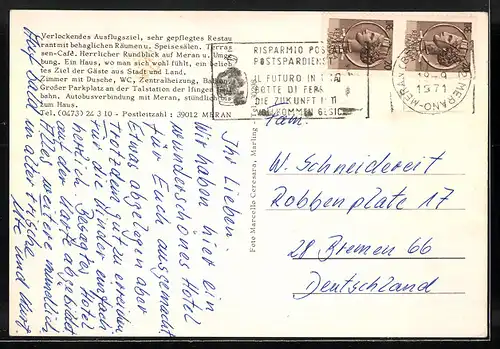 Verlockendes Ausflugsziel, sehr gepflegtes Restau
rant mit behaglichen Räumen u. Speisesälen. Terras
sen-Café. Herrlicher Rundblick auf Meran u. Um
bung. Ein Haus, wo man sich wohl fühlt, ein belieb
tes Ziel der Gäste aus Stadt und Land.
Zimmer mit Dusche, WC, Zentralheizung, Balkon
Großer Parkplatz an der Talstation der Ifinger
bahn. Autobusverbindung mit Meran, stündlich
zum Haus.
Tel. (0473) 24 3 10 - Postleitzahl: 39012 MERAN
RISPARMIO POSTALE
POSTSPARDIENST
IL FUTURO IN
BOTTE DI FERRO
DIE ZUKUNFT IN
VOLLKOMMEN GESICHERT
MERANO-MERAN
1971
Foto Marcello Ceresara, Marling
Ihr Lieben.
Wir haben hier ein
wunderschönes Hotel
für Euch ausgemacht
Etwas abgelegen aber
trotzdem gut zu erreichen
Für die Kinder einfach
herrlich. Besagtes Hotel
auf der Karte abgebildet
Alles weitere mündlich
in alter Frische
Ute und Kurt
Fam.
W. Schneidereit
Robbenplate 17
28 Bremen 66
Deutschland